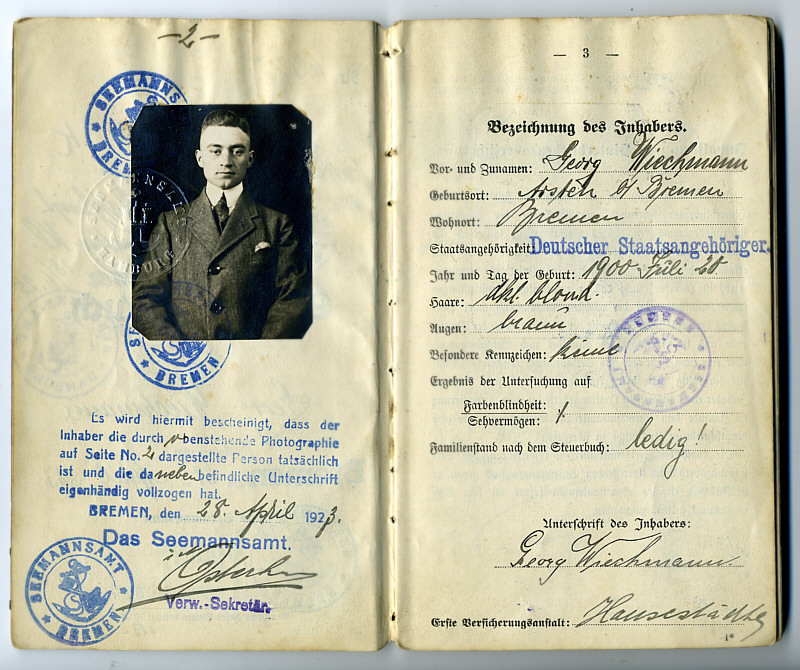 -2-
SEEMANNSAMT
BREMEN
HAMBURG
BREMEN
Es wird hiermit bescheinigt, dass der
Inhaber die durch obenstehende Photographie
auf Seite No. 2 dargestellte Person tatsächlich
ist und die daneben befindliche Unterschrift
eigenhändig vollzogen hat.
BREMEN, den 28. April 1923.
Das Seemannsamt.
Verw.-Sekretär.
SEEMANNSAMT
BREMEN
— 3 —
Bezeichnung des Inhabers.
Vor- und Zunamen: Georg Wiechmann
Geburtsort: Arsten b/ Bremen
Wohnort: Bremen
Staatsangehörigkeit Deutscher Staatsangehöriger.
Jahr und Tag der Geburt: 1900 Juli 20
Haare: dkl. blond.
Augen: braun
Besondere Kennzeichen: keine
Ergebnis der Untersuchung auf
Farbenblindheit:
Sehvermögen:
Familienstand nach dem Steuerbuch: ledig!
Unterschrift des Inhabers:
Georg Wiechmann
Erste Versicherungsanstalt: